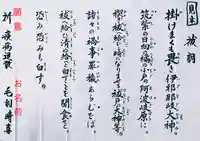 祓詞
掛けまくも畏き伊邪那岐大神
筑紫の日向の橘の小戸の阿波岐原に
禊ぎ祓へ給ひし時に生り坐せる祓戸大神等
諸々の禍事罪穢あらむをば
祓へ給ひ清め給へと白すことを聞食せと
恐み恐みも白す
願意 お名前
祈 疾病退散